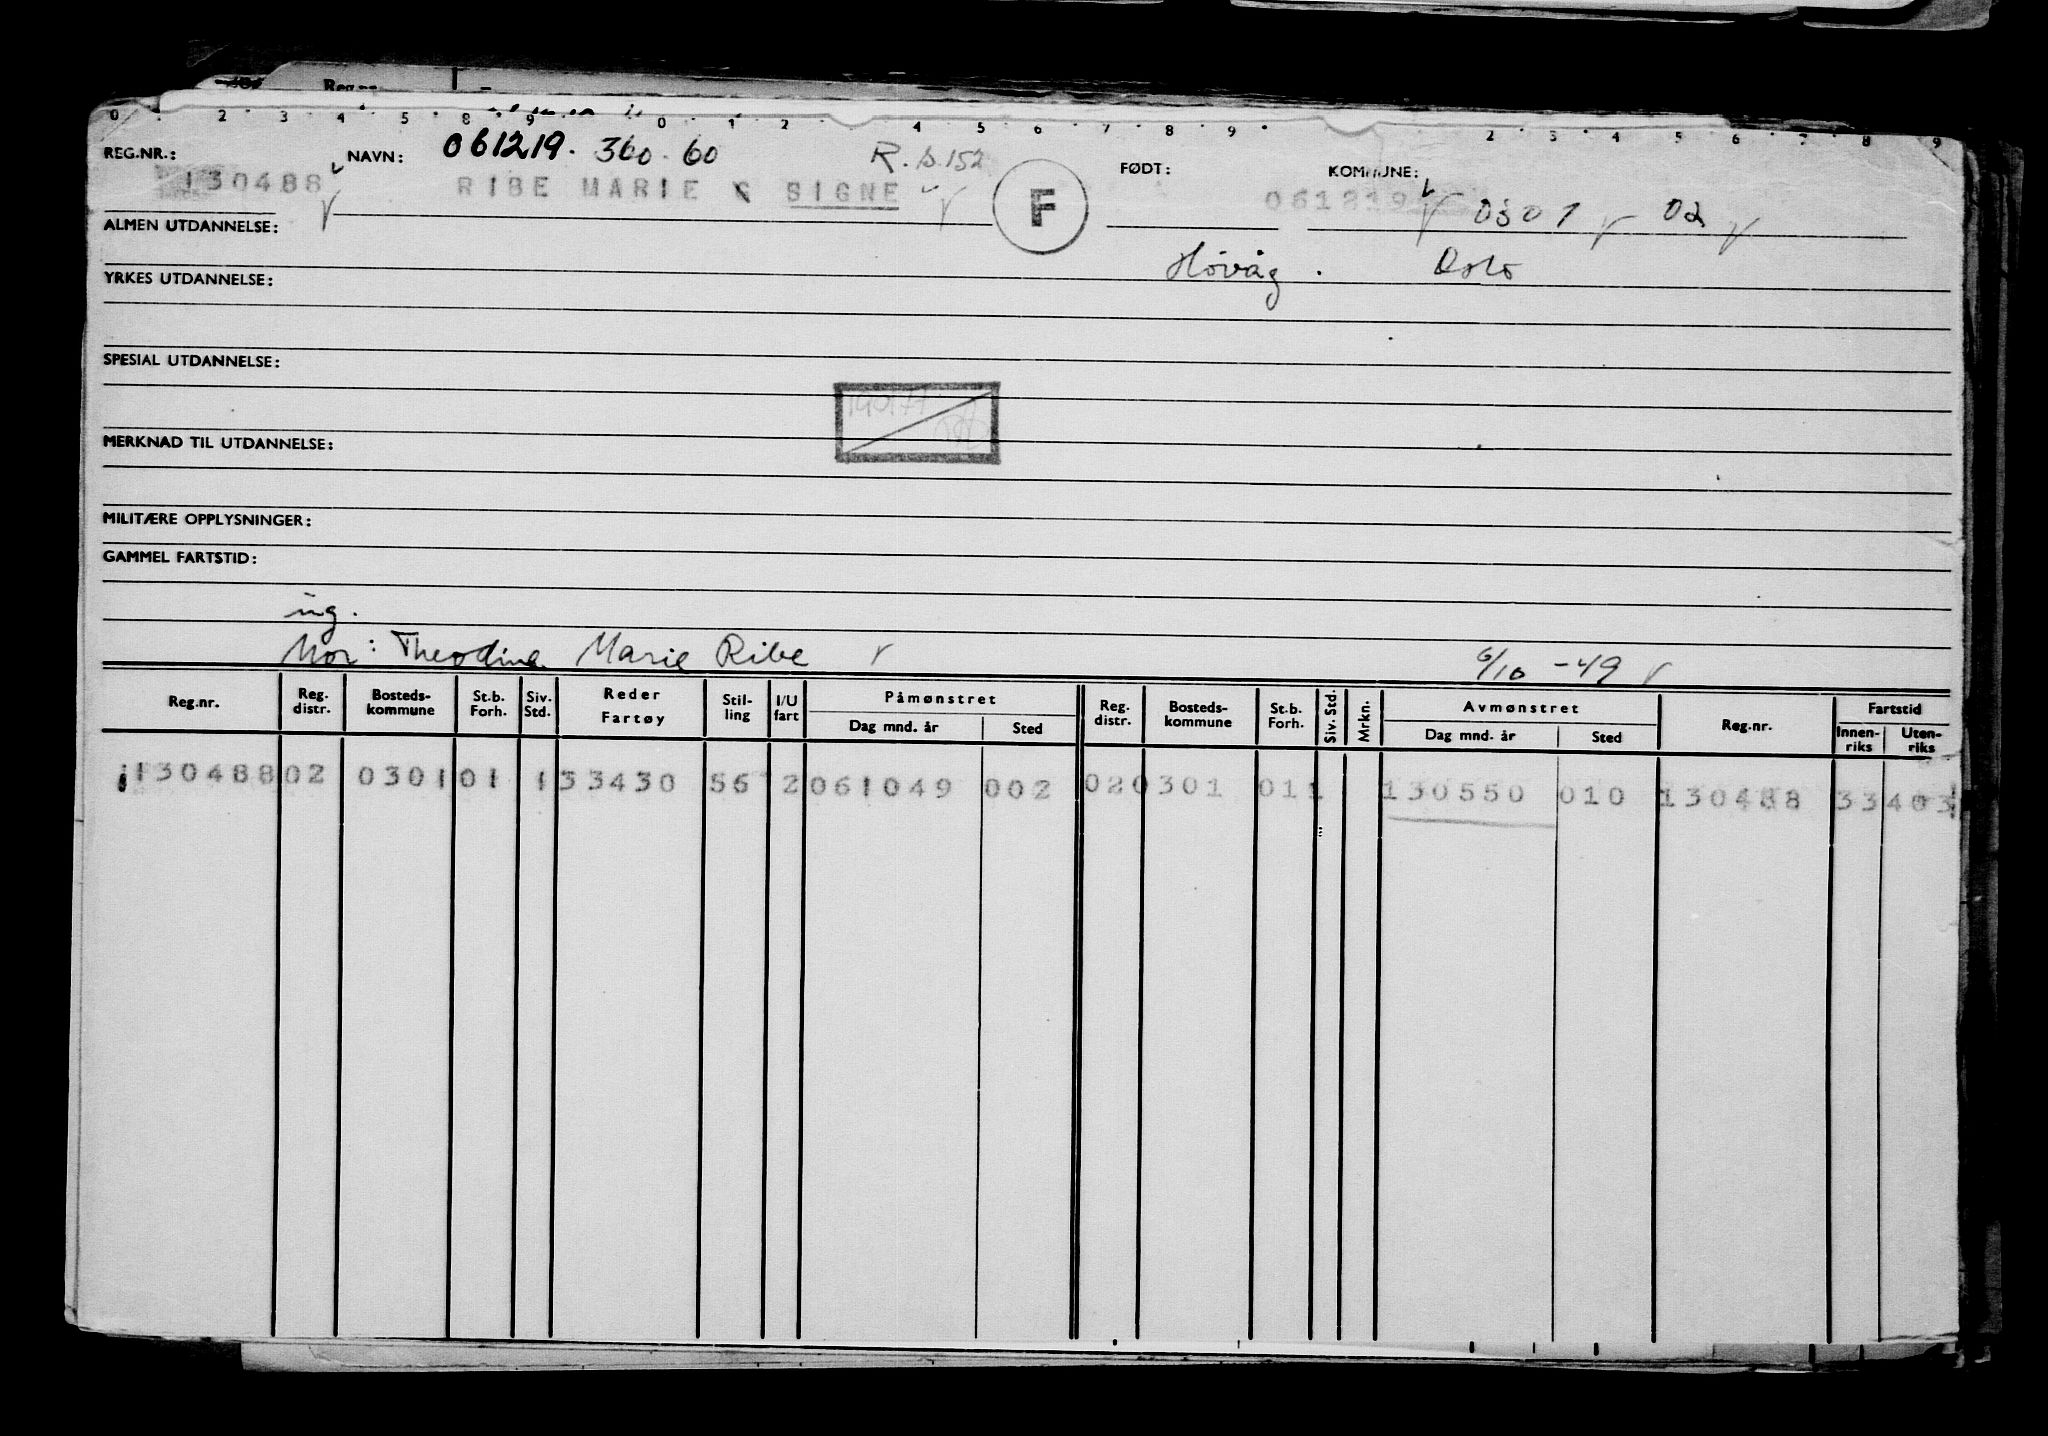 0 2 3 4 5 8 9 0 1 2 4 5 6 7 8 9 2 3 4 5 6 7 8 9
REG.NR.: NAVN: 061219. 360. 60 R. s. 152 FØDT: KOMMUNE:
130488 RIBE MARIE S SIGNE F 061219 0301 02
ALMEN UTDANNELSE:
Høvåg . Oslo
YRKES UTDANNELSE:
SPESIAL UTDANNELSE:
MERKNAD TIL UTDANNELSE:
MILITÆRE OPPLYSNINGER:
GAMMEL FARTSTID:
ing.
Mor: Theodine Marie Ribe 6/10 - 49
Reg.nr. Reg. distr. Bosteds-kommune St.b. Forh. Siv. Std. Reder Fartøy Stil-ling I/U fart Påmønstret Dag mnd. år Sted Reg. distr. Bosteds-kommune St.b. Forh. Siv. Std. Mrkn. Avmønstret Dag mnd. år Sted Reg.nr. Fartstid Innen-riks Uten-riks
130488 02 0301 01 1 33430 56 2 061049 002 02 0301 01 1 130550 010 130488 33403